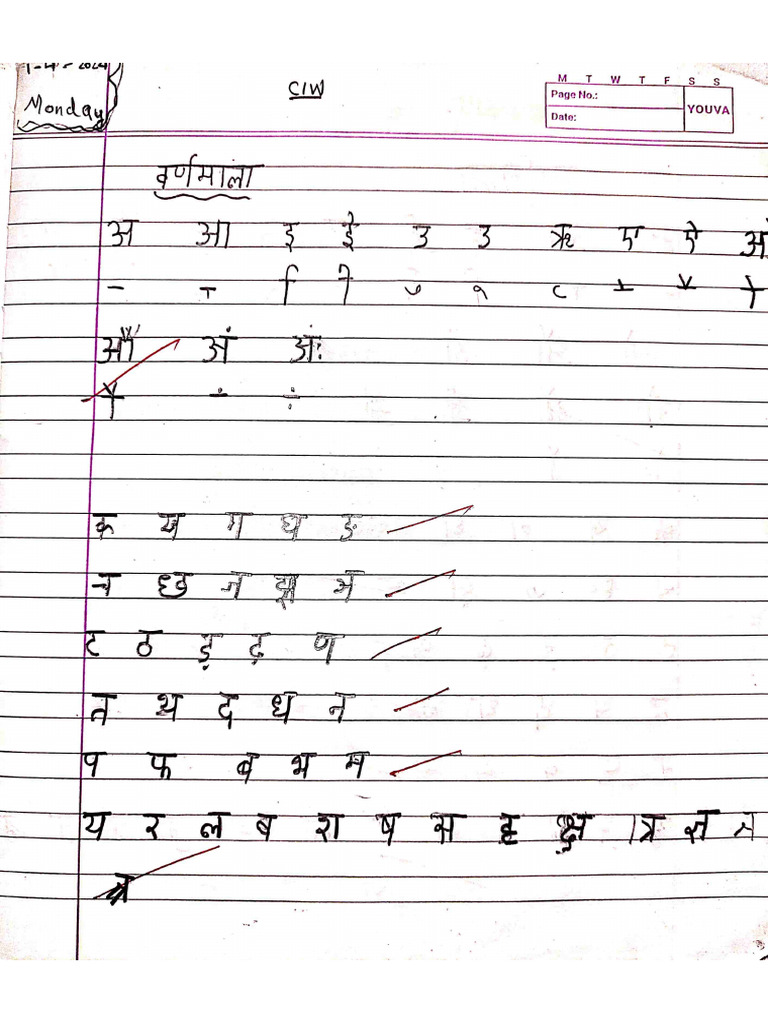 Monday
C/W
M T W T F S S
Page No.:
YOUVA
Date:
वर्णमाला
अ आ इ ई उ उ ऋ ए ऐ ओ
औ अं अः
क ख ग घ ङ
च छ ज झ ञ
ट ठ ड़ ढ़ ण
त थ द ध न
प फ ब भ म
य र ल व श ष स ह क्ष त्र ज्ञ